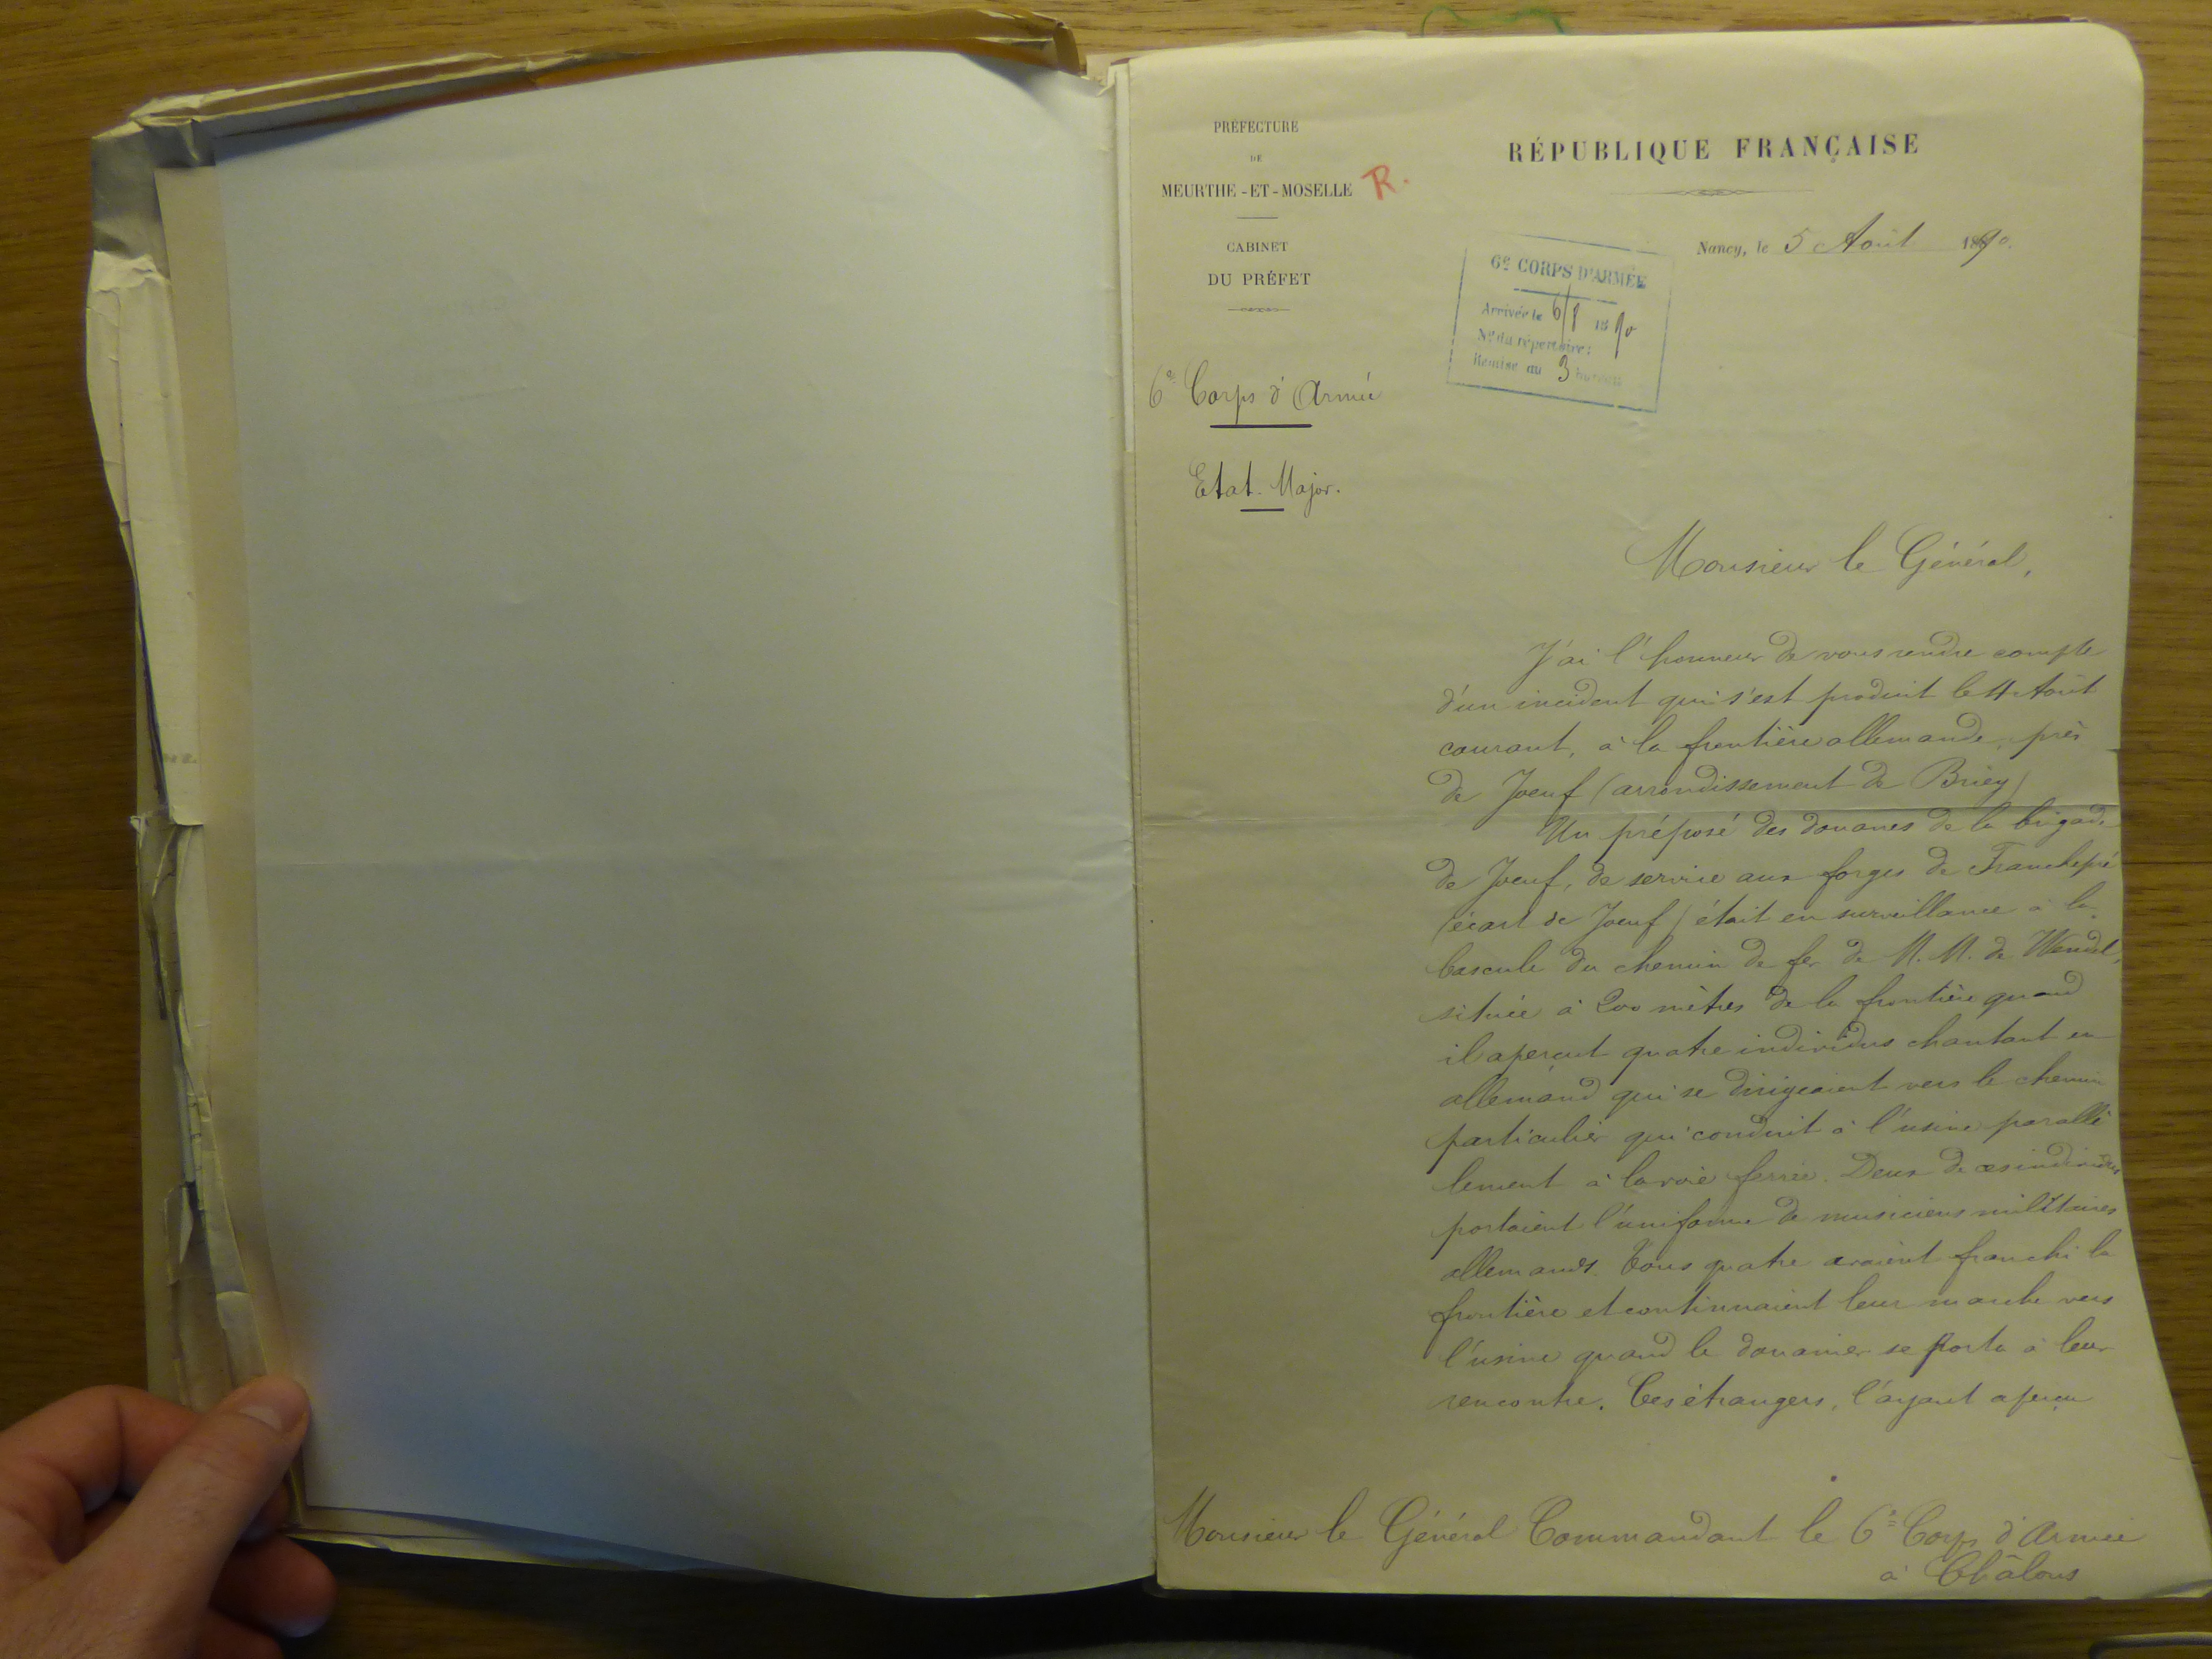 PRÉFECTURE
DE
MEURTHE-ET-MOSELLE
R.
CABINET
DU PRÉFET
RÉPUBLIQUE FRANÇAISE
Nancy, le 5 Août 1890.
6e CORPS D'ARMÉE
Arrivée le 6/8 1890
No du répertoire:
Remise au 3 bureau
6e Corps d'Armée
Etat-Major.
Monsieur le Général,
J'ai l'honneur de vous rendre compte
d'un incident qui s'est produit le 4 Août
courant, à la frontière allemande, près
de Joeuf (arrondissement de Briey)
Un préposé des douanes de la brigade
de Joeuf, de service aux forges de Franchepré
(écart de Joeuf) était en surveillance à la
bascule du chemin de fer de M.M. de Wendel,
située à 200 mètres de la frontière quand
il aperçut quatre individus chantant en
allemand qui se dirigeaient vers le chemin
particulier qui conduit à l'usine parallè
lement à la voie ferrée. Deux de ces individus
portaient l'uniforme de musiciens militaires
allemands. Tous quatre avaient franchi la
frontière et continuaient leur marche vers
l'usine quand le douanier se porta à leur
rencontre. Ces étrangers, l'ayant aperçu
Monsieur le Général Commandant le 6e Corps d'Armée
à Châlons